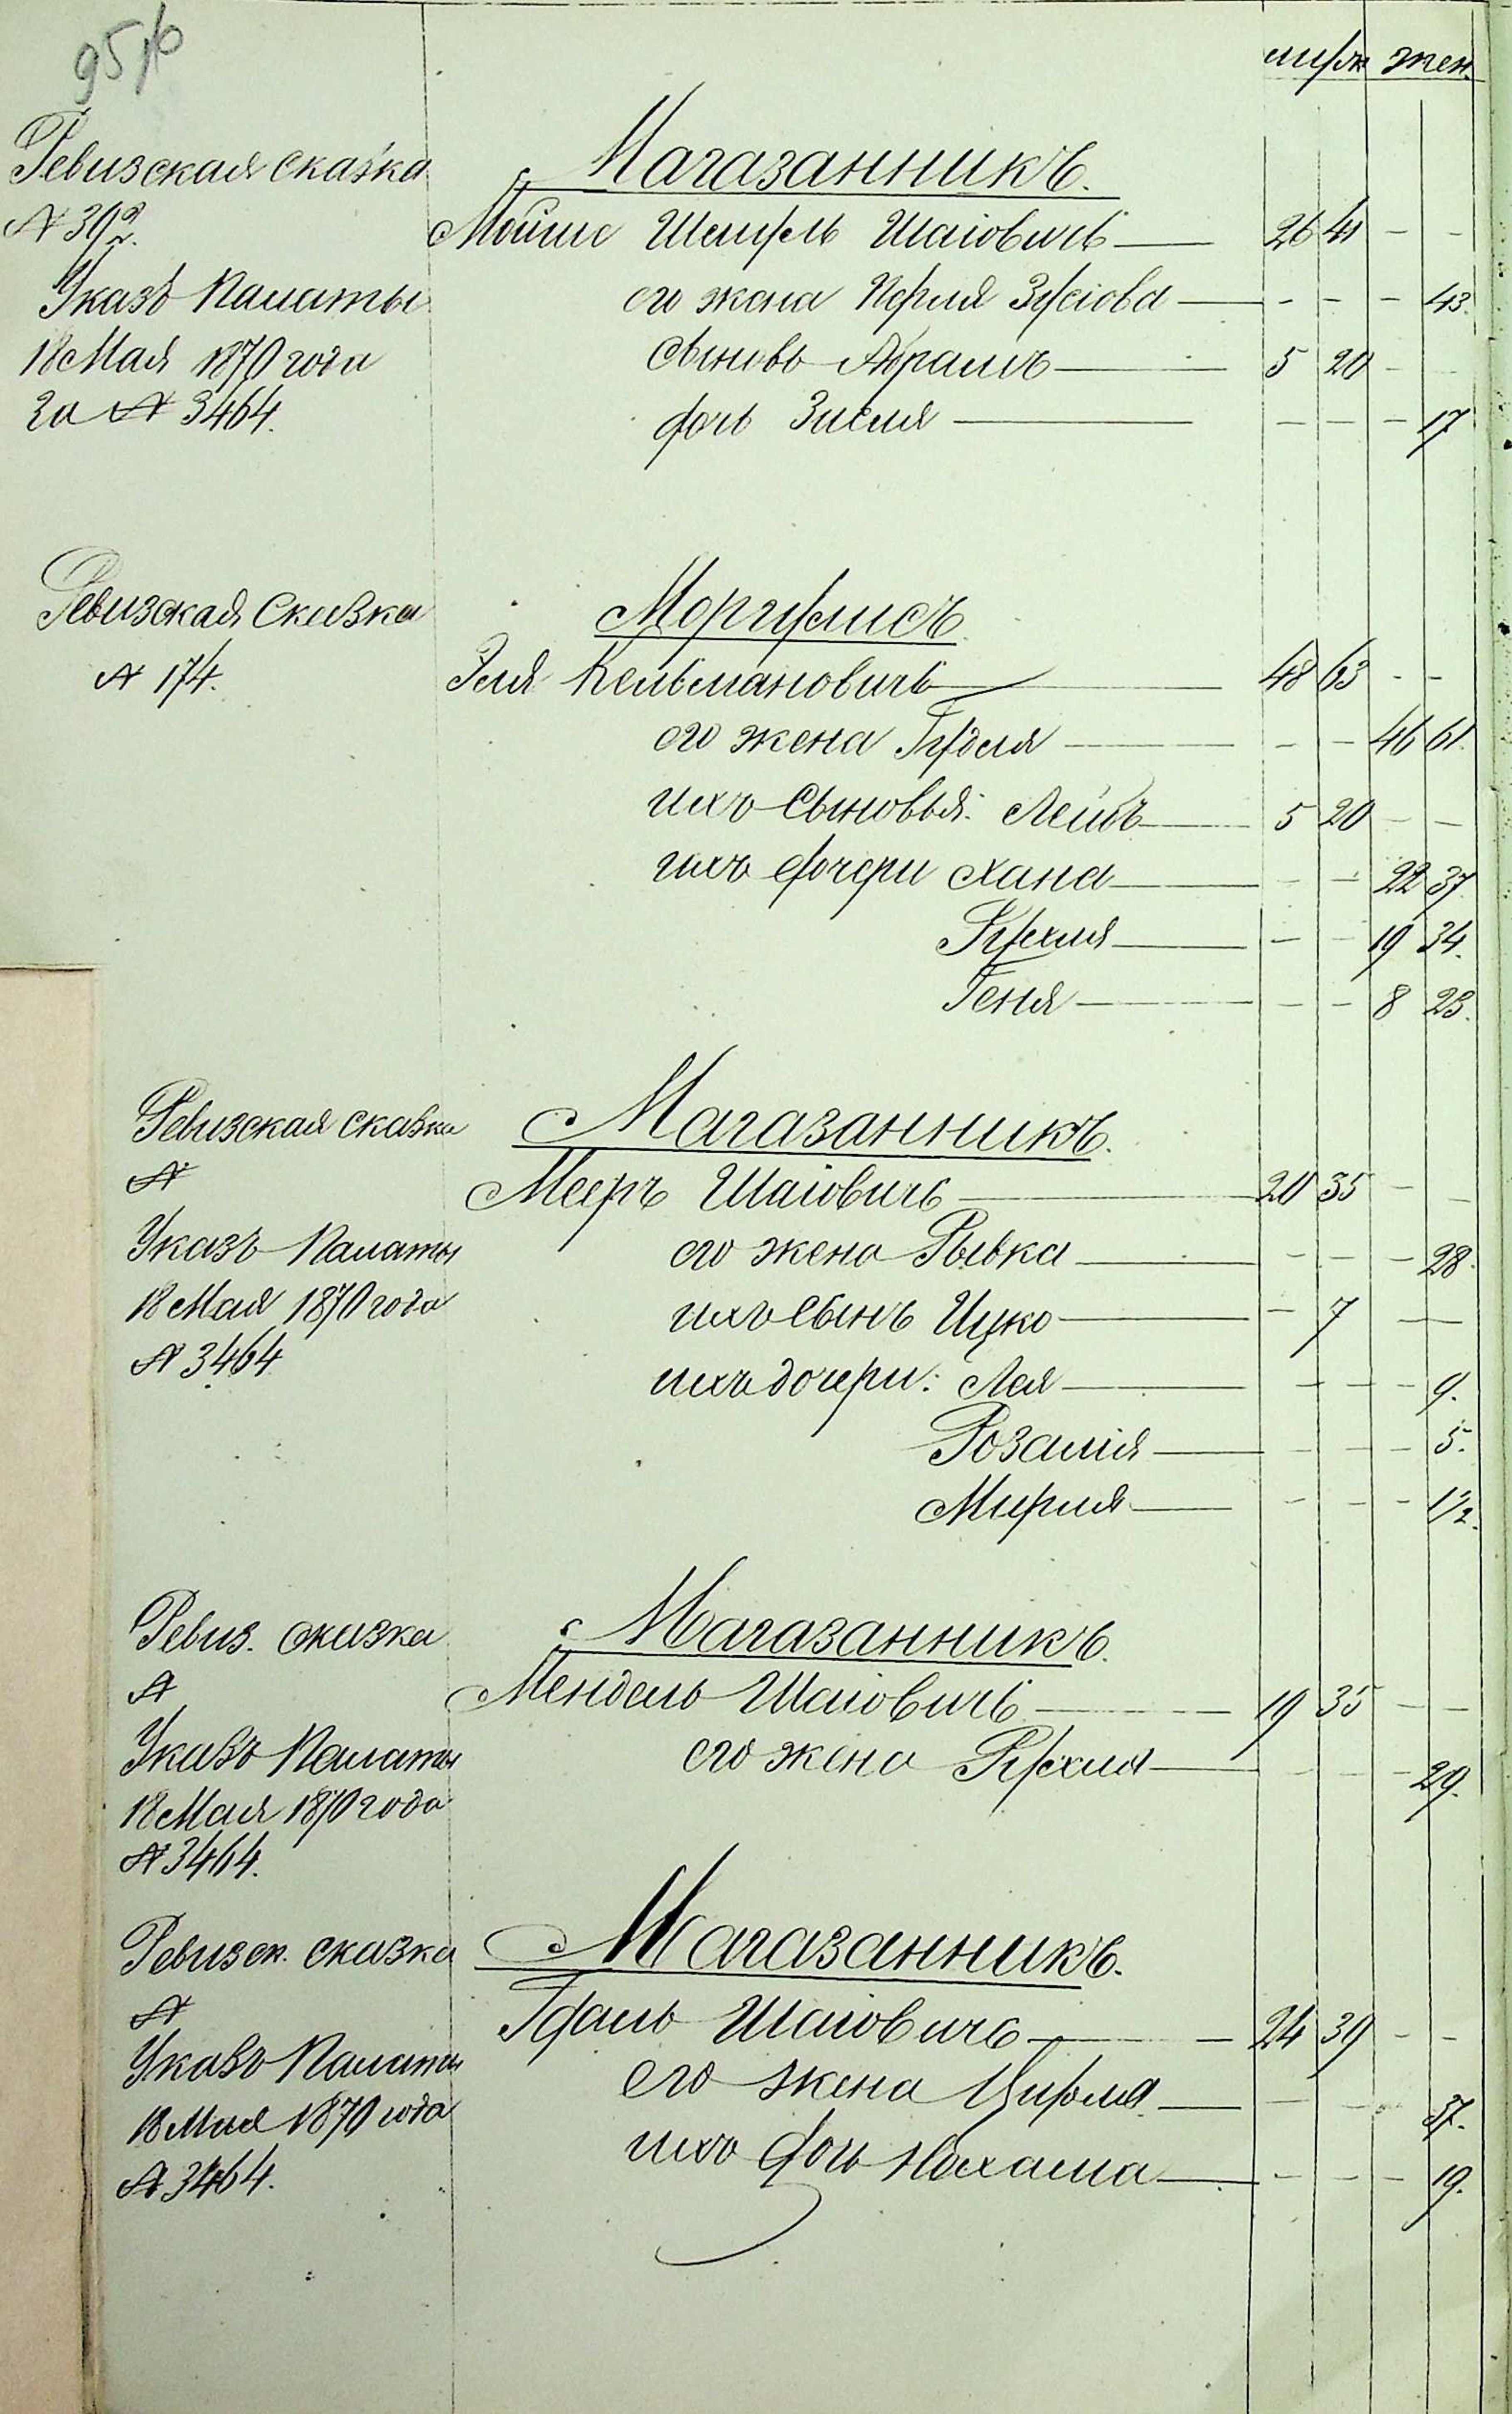 95 об
муж жен.
Ревизская сказка
№ 392.
Указъ Палаты
18 Мая 1870 года
за № 3464.
Магазанникъ.
Мойше Шмуль Шаіовичъ 26 41 - -
его жена Перля Зусіова - - - 43.
сыновь Абрамъ 5 20 - -
дочь Зисля - - - 17
Ревизская Сказка
№ 174.
Моргулисъ
Эля Кельмановичъ 48 63 - -
его жена Гудля - - 46 61.
ихъ сыновья: Лейбъ 5 20 - -
ихъ дочери Хана - - 22 37.
Рухля - - 19 34.
Геня - - 8 23.
Ревизская сказка
№
Указъ Палаты
18 Мая 1870 года
№ 3464
Магазанникъ.
Мееръ Шаіовичъ 20 35 - -
его жена Рывка - - - 28.
ихъ сынъ Ицко - 7 - -
ихъ дочери: Лея - - - 9.
Розалія - - - 5.
Мирля - - - 1/2.
Ревиз. сказка
№
Указъ Палаты
18 Мая 1870 года
№ 3464.
Магазанникъ.
Мендель Шаіовичъ 19 35 - -
его жена Рухля - - - 29.
Ревизск. сказка
№
Указъ Палаты
18 Мая 1870 года
№ 3464.
Магазанникъ.
Гдаль Шаіовичъ 24 39 - -
его жена Цирля - - - 37.
ихъ дочь Нехама - - - 19.